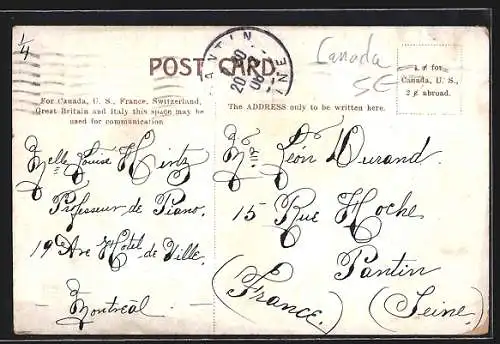 1/4
PANTIN
20
06
SEINE
Canada
5€
POST CARD
1¢ for
Canada, U. S.,
2¢ abroad.
For Canada, U. S., France, Switzerland,
Great Britain and Italy this space may be
used for communication
The ADDRESS only to be written here.
Melle Louise Hintz
Professeur de Piano.
19 Ave Hotel de Ville.
Montreal
Léon Durand.
15 Rue Hoche
Pantin
(France.)
(Seine)